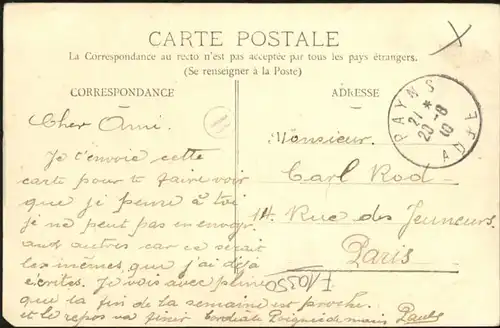 CARTE POSTALE
La Correspondance au recto n'est pas acceptée par tous les pays étrangers.
(Se renseigner à la Poste)
CORRESPONDANCE
ADRESSE
PAYNS
21 *
20-8
10
AUBE
Cher Ami.
Je t'envoie cette
carte pour te faire voir
que je pense à toi
je ne peut pas en envoyer
aux autres car ce serait
les mêmes, que j'ai déjà
écrites. Je vois avec peine
que la fin de la semaine est proche
et le repos va finir Cordiale Poignée de main Paul
Monsieur.
Carl Rod
14. Rue des Jeuneurs.
Paris